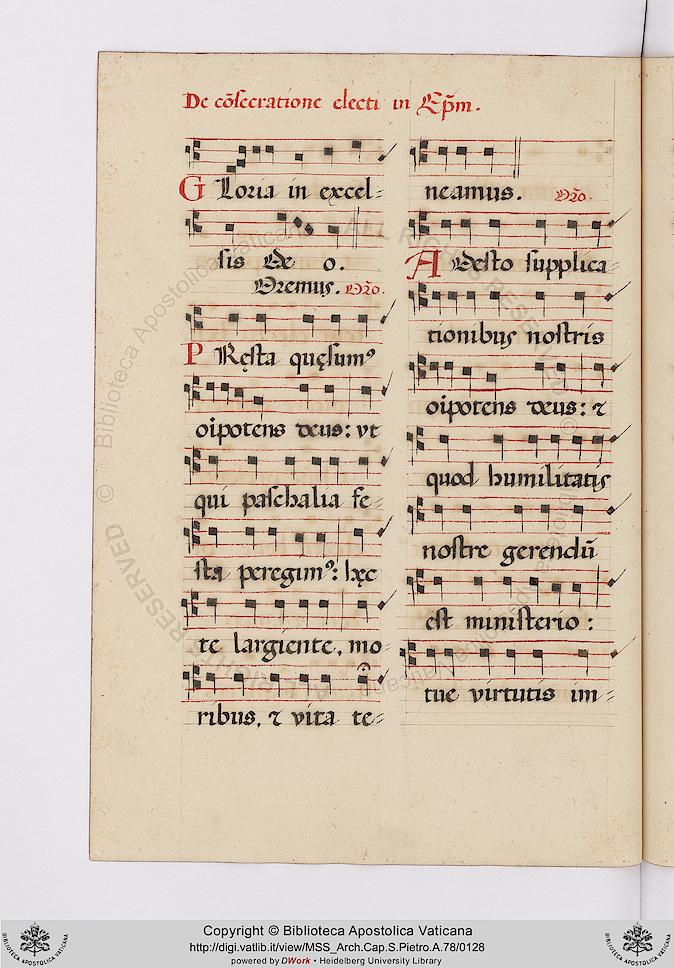 De cõsecratione electi in Ep̃m.
Gloria in excel=
sis De o.
Oremus. Orõ.
PRęsta quęsumꝰ
oĩpotens deus: vt
qui paschalia fe=
sta peregimꝰ: hęc
te largiente, mo=
ribus, ⁊ vita te=
neamus. Orõ.
ADesto supplica=
tionibus nostris
oĩpotens deus: ⁊
quod humilitatis
nostre gerendũ
est ministerio:
tue virtutis im=
© Biblioteca Apostolica Vaticana ALL RIGHTS RESERVED
Copyright © Biblioteca Apostolica Vaticana
http://digi.vatlib.it/view/MSS_Arch.Cap.S.Pietro.A.78/0128
powered by DWork • Heidelberg University Library
BIBLIOTECA APOSTOLICA VATICANA
BIBLIOTECA APOSTOLICA VATICANA